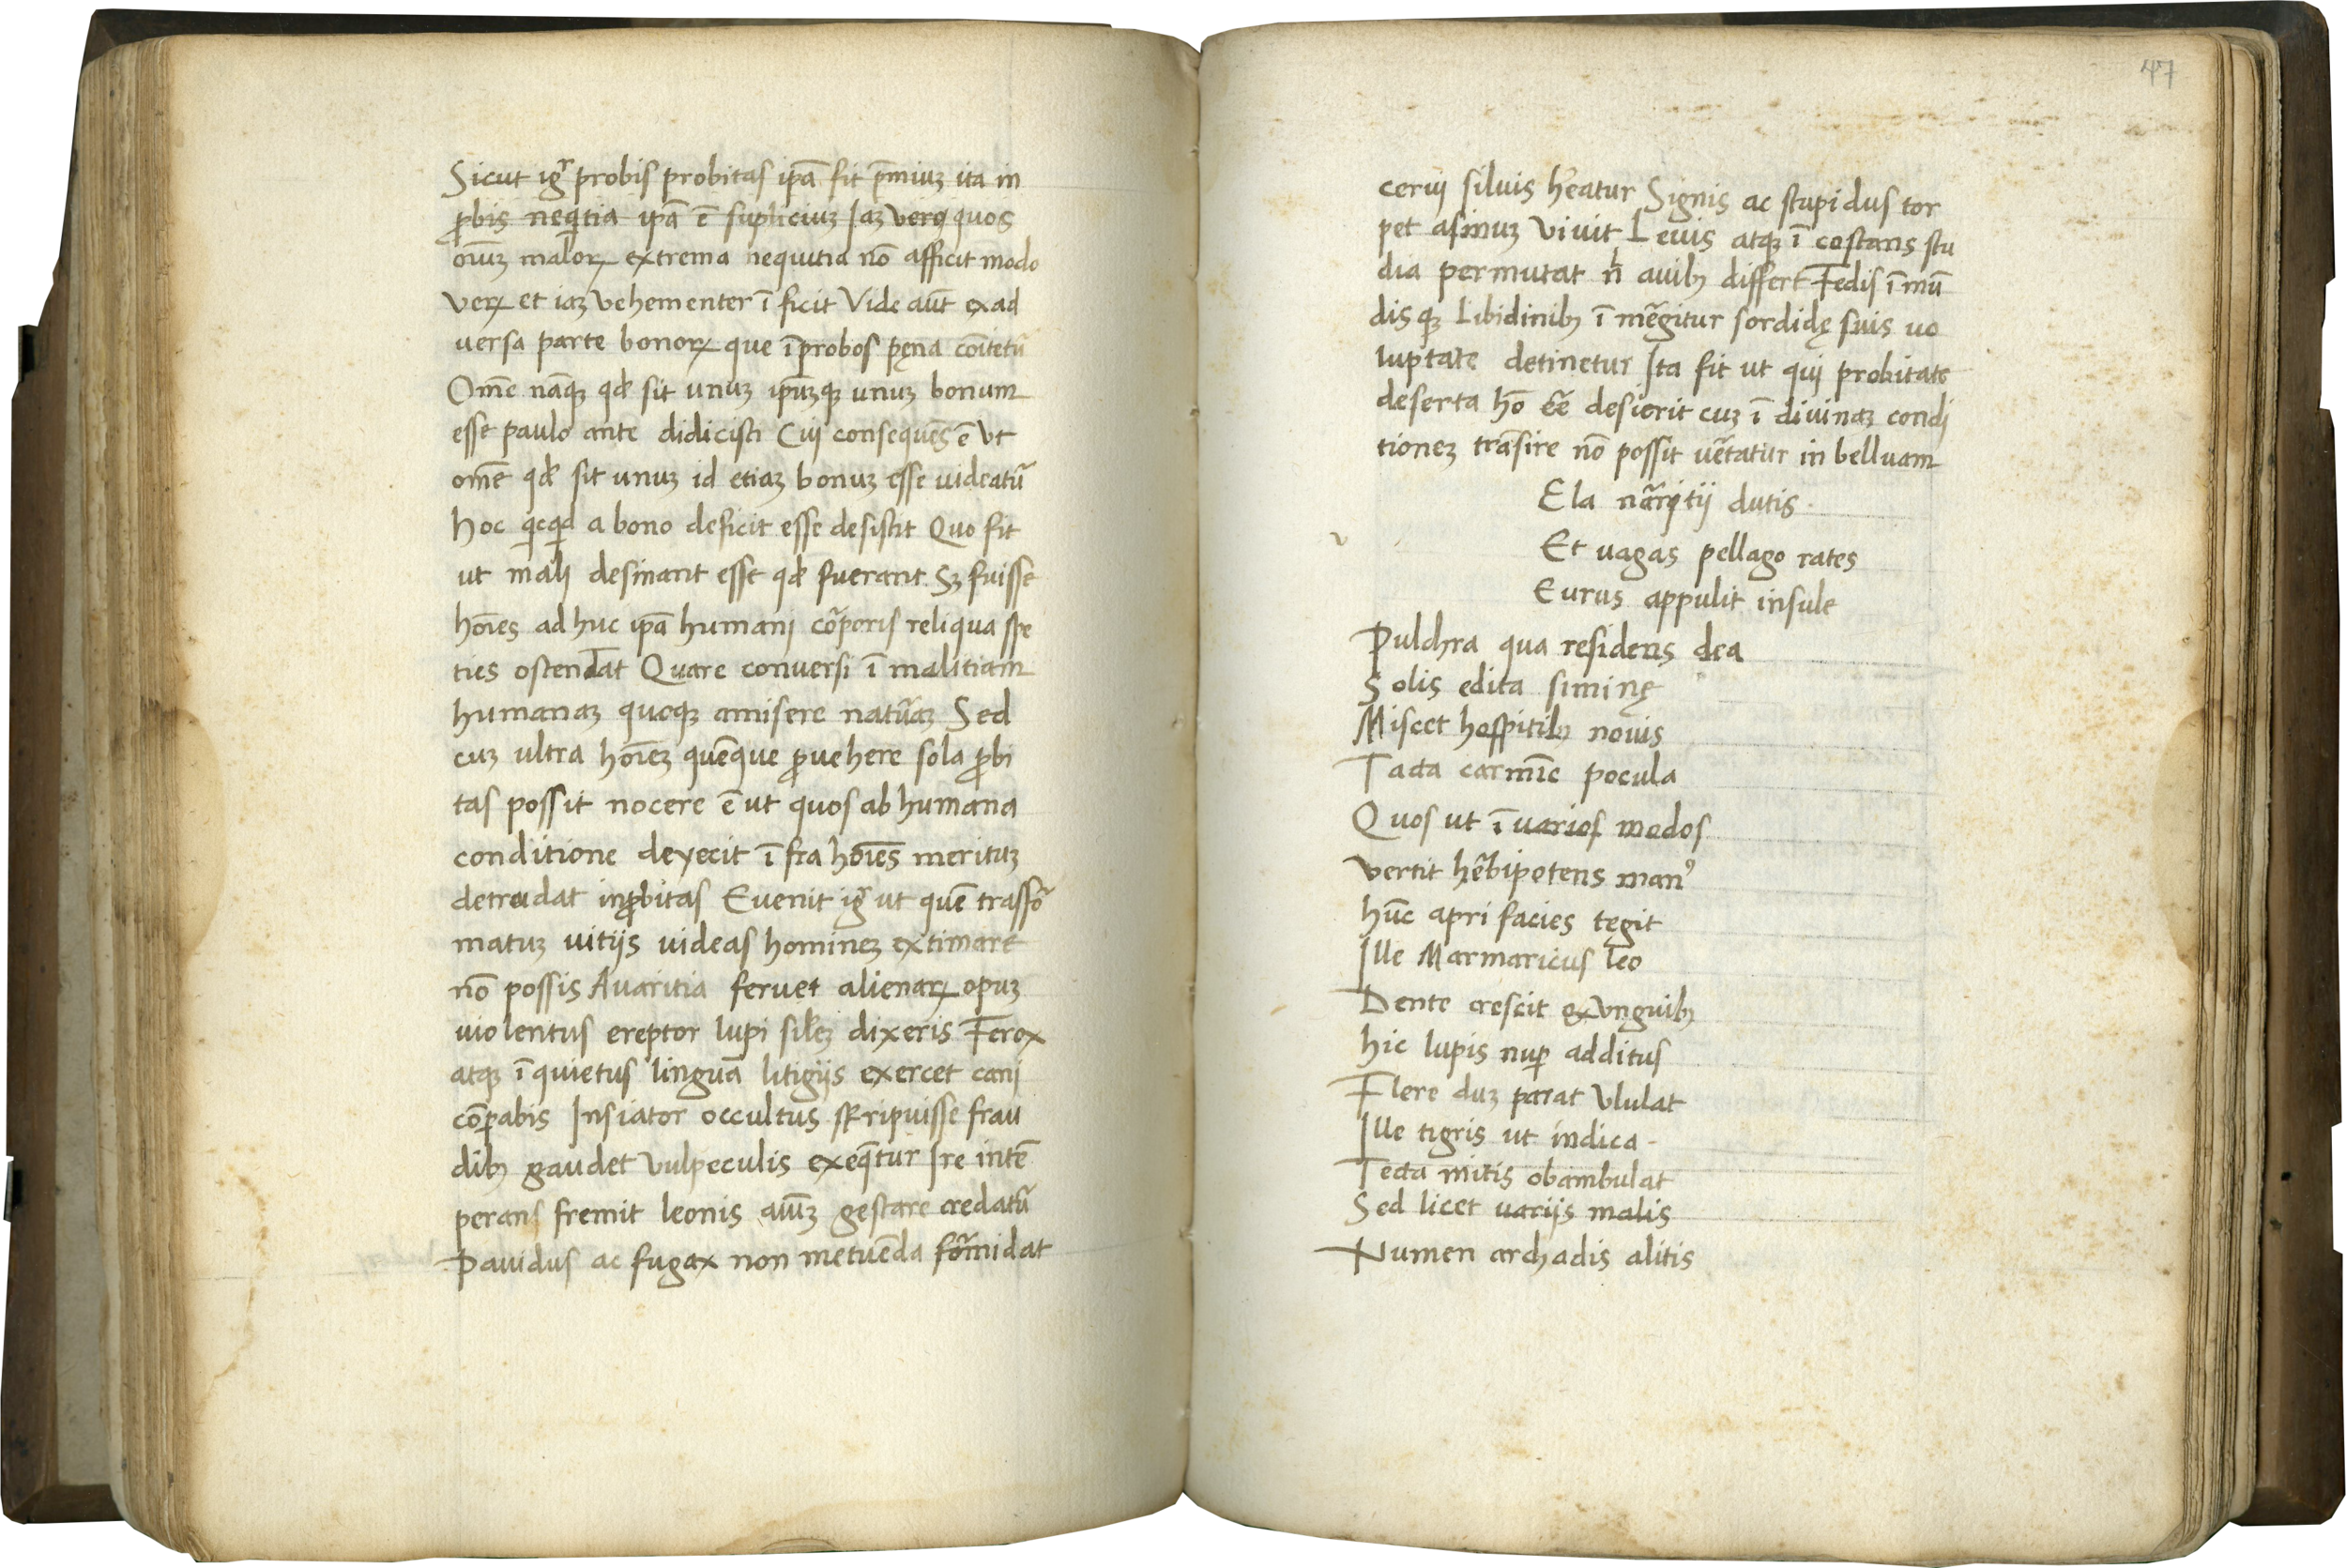 Sicut igr̃ probis probitas ip̃a fit p̃miuꝫ ita in
ꝓbis neq̇tia ip̃a ẽ supliciuꝫ Iaꝫ vero quos
oĩuꝫ maloꝝ extrema nequitia nõ afficit modo
veꝝ et iaꝫ vehementer ĩ ficit Vide aũt ex ad
versa parte bonoꝝ que ĩprobos pęna cõitetũ
Om̃e nãqꝫ qđ sit unuꝫ ip̃uꝫqꝫ unuꝫ bonum
esse paulo ante didicisti Cui consequẽs ẽ Vt
om̃e qđ sit unuꝫ id etiaꝫ bonuꝫ esse videatũ
hoc qicqid a bono deficit esse desistit Quo fit
ut mali desinant esse qđ fuerant Sꝫ fuisse
hoĩes ad huc ip̃a humani cõꝑoris reliqua spe
ties ostendat Quare conversi ĩ malitiam
humanaꝫ quoqꝫ amisere natũaꝫ Sed
cuꝫ ultra hoĩeꝫ quẽque ꝓvehere sola ꝓbi
tas possit nocere ẽ ut quos ab humana
conditione deyecit ĩ fra hoĩes merituꝫ
detrudat inꝓbitas Evenit igr̃ ut quẽ trasfõ
matuꝫ vitijs videas homineꝫ extimare
nõ possis Avaritia fervet alienaꝝ opuꝫ
violentus ereptor lupi sil̃eꝫ dixeris Ferox
atqꝫ ĩ quietus linguã litigijs exercet cani
cõꝑabis Insiator occultus sr̃ripuisse frau
dibꝫ gaudet vulpeculis exeq̃tur Ire intẽ
perans fremit leonis aĩuꝫ gestare credatũ
Pavidus ac fugax non metuẽda fõmidat
47
cervi silvis h̃eatur Signis ac stupidus tor
pet asinuꝫ vivit Levis atqꝫ ĩ costans stu
dia permutat nl̃ avibꝫ differt Fedis ĩ mũ
dis qꝫ Libidinibꝫ ĩ mẽgitur sordidę suis vo
luptate detinetur Ita fit ut qui probitate
deserta hõ eẽ desierit cuꝫ ĩ divinaꝫ condi
tioneꝫ trãsire nõ possit vẽtatur in belluam
Ela nãritii dutis
Et vagas pellago rates
Eurus appulit insule
Pulchra qua residens dea
Solis edita siminę
Miscet hospitibꝫ novis
Tacta carmĩe pocula
Quos ut ĩ varios modos
vertit hẽbipotens manꝰ
hũc apri facies tegit
Ille Marmaricus leo
Dente crescit ex unguibꝫ
hic lupis nuꝑ additus
Flere duꝫ parat Ululat
Ille tigris ut indica
Tecta mitis obambulat
Sed licet variis malis
Numen archadis alitis